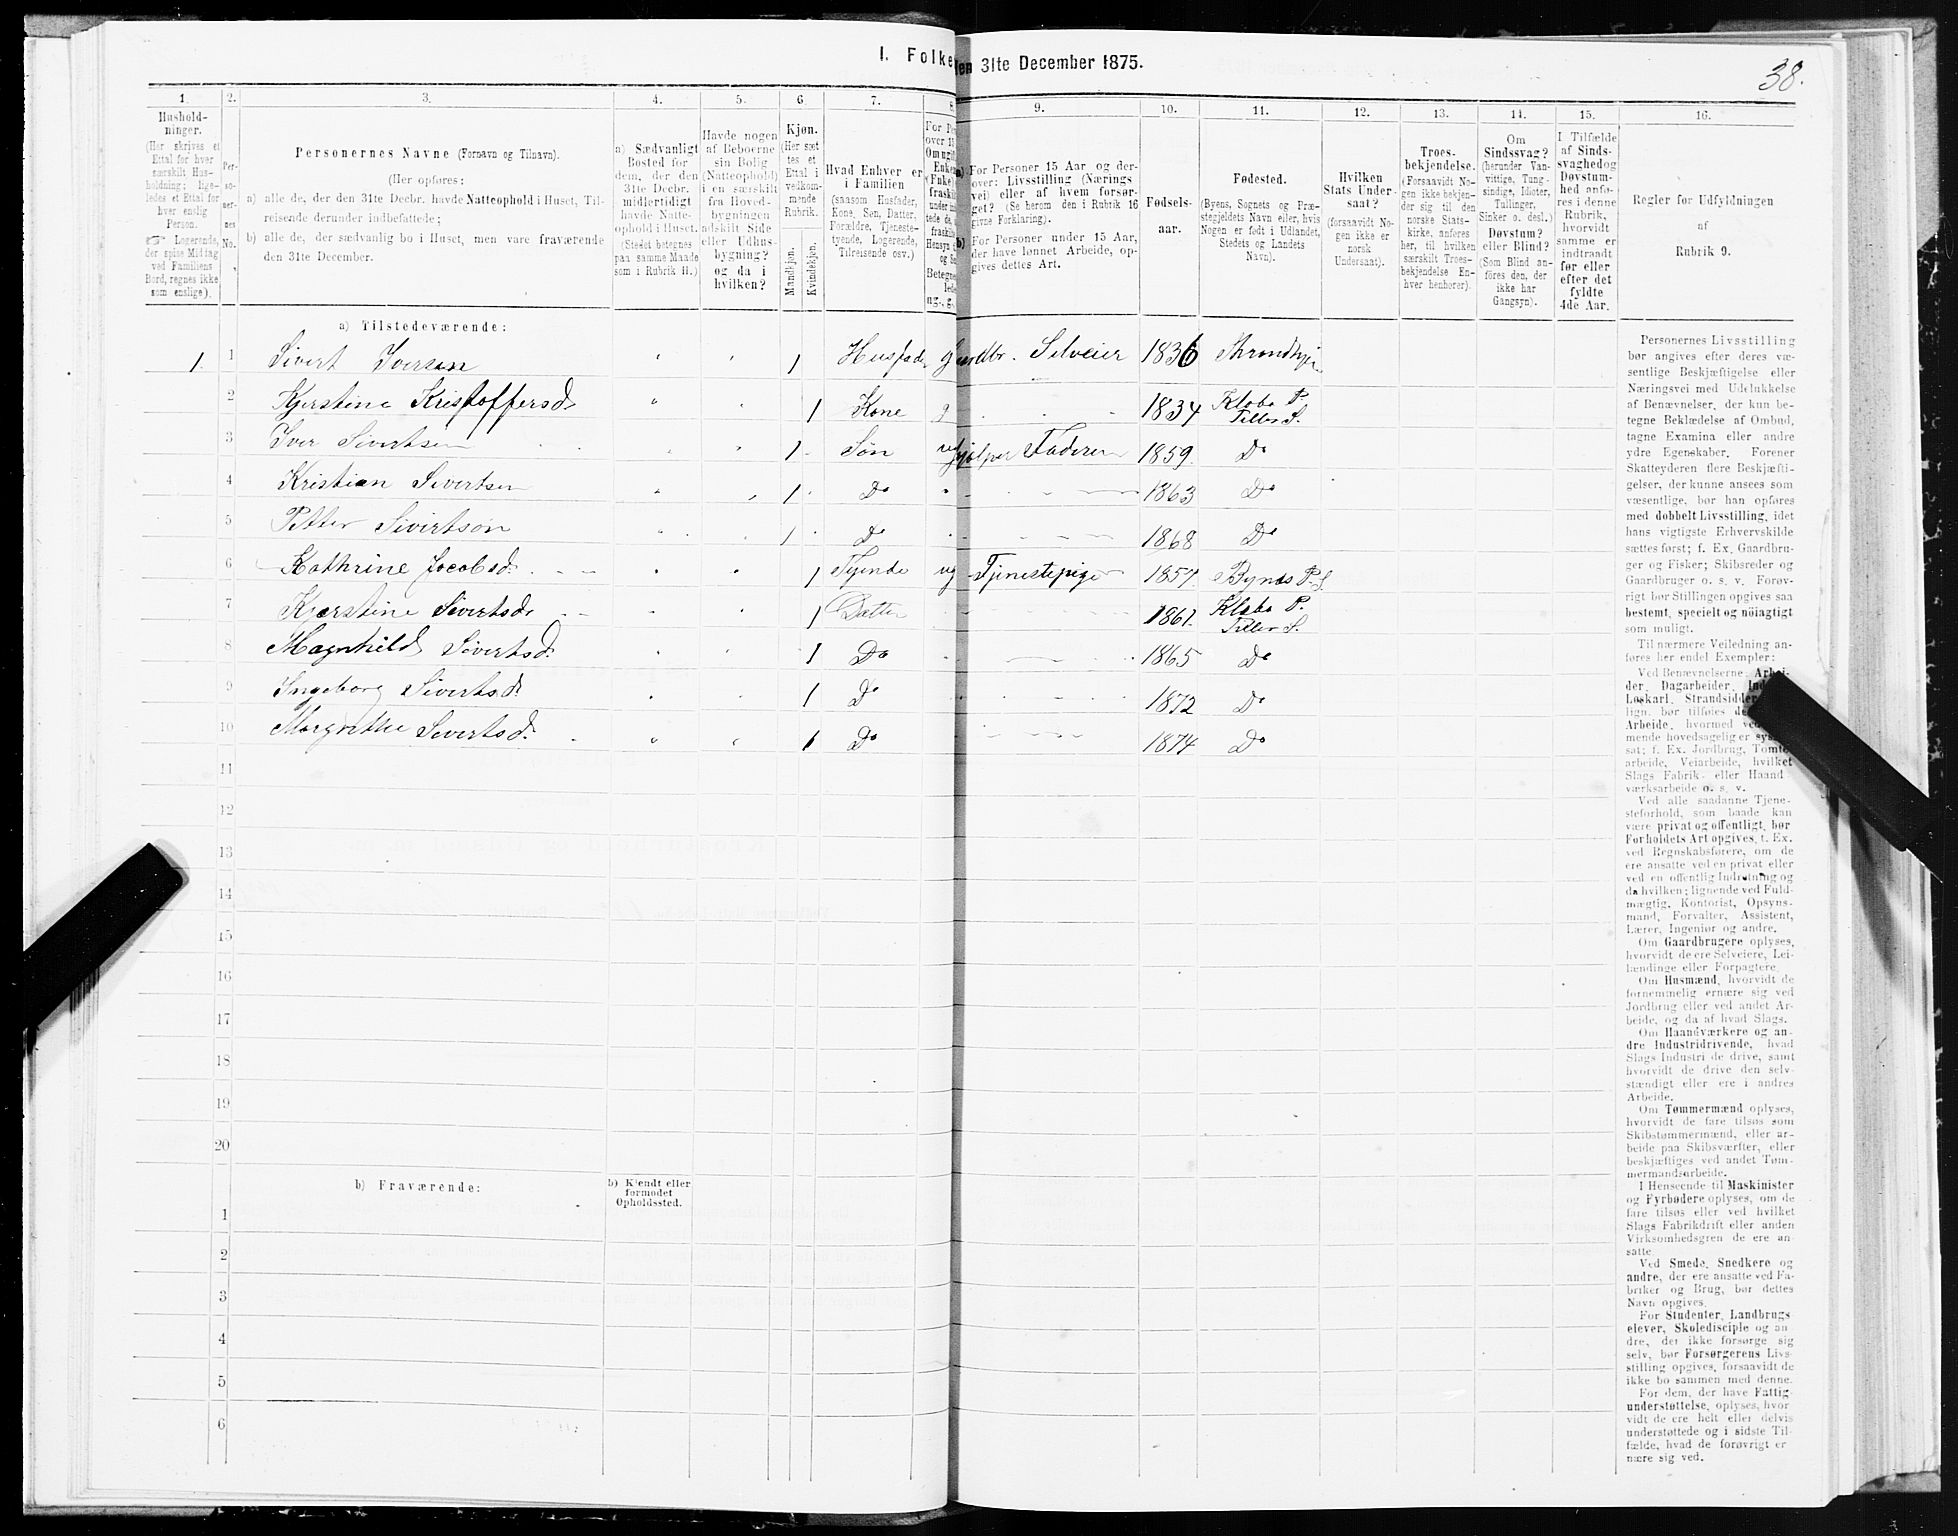 I. Folke
en 31te December 1875.
38.
1.
2.
3.
4.
5.
6.
7.
8
9.
10.
11.
12.
13.
14.
15.
16.
Hushold-
ninger.
(Her skrives et
Ettal for hver
særskilt Hus-
holdning; lige-
ledes et Ettal for
hver enslig
Person.
☞ Logerende,
der spise Middag
ved Familiens
Bord, regnes ikke
som enslige).
Per-
so-
ner-
nes
No.
Personernes Navne (Fornavn og Tilnavn).
(Her opføres:
a) alle de, der den 31te Decbr. havde Natteophold i Huset, Til-
reisende derunder indbefattede;
b) alle de, der sædvanlig bo i Huset, men vare fraværende
den 31te December.
a) Sædvanligt
Bosted for
dem, der den
31te Decbr.
midlertidigt
havde Natte-
ophold i Huset.
(Stedet betegnes
paa samme Maade
som i Rubrik 11.)
Havde nogen
af Beboerne
sin Bolig
(Natteophold)
i en særskilt
fra Hoved-
bygningen
adskilt Side
eller Udhus-
bygning?
og da i
hvilken?
Kjøn.
(Her sæt
tes et
Ettal i
vedkom-
mende
Rubrik.
Mandkjøn.
Kvindekjøn.
Hvad Enhver er
i Familien
(saasom Husfader,
Kone, Søn, Datter,
Forældre, Tjeneste-
tyende, Logerende,
Tilreisende osv.)
For Personer 15 Aar og der-
over: Livsstilling (Nærings
vei) eller af hvem forsør-
get? (Se herom den i Rubrik 16
givne Forklaring).
For Personer under 15 Aar,
der have lønnet Arbeide, op-
gives dettes Art.
Fødsels-
aar.
Fødested.
(Byens, Sognets og Præ-
stegjeldets Navn eller, hvis
Nogen er født i Udlandet,
Stedets og Landets
Navn).
Hvilken
Stats Under-
saat?
(forsaavidt No-
gen ikke er
norsk
Undersaat).
Troes-
bekjendelse.
(Forsaavidt No-
gen ikke bekjen-
der sig til den
norske Stats-
kirke, anføres
her, til hvilken
særskilt Troes-
bekjendelse En-
hver henhører).
Om
Sindssvag?
(herunder Van-
vittige, Tung-
sindige, Idioter,
Tullinger,
Sinker o. desl.)
Døvstum?
eller Blind?
(Som Blind an-
føres den, der
ikke har
Gangsyn).
I Tilfælde
af Sinds-
svaghed og
Døvstum-
hed anfø-
res i denne
Rubrik,
hvorvidt
samme er
indtraadt
før eller
efter det
fyldte
4de Aar.
Regler for Udfyldningen
af
Rubrik 9.
a) Tilstedeværende:
1. 1 Sivert Iversen " " 1 Husfad. g Gaardbr. Selveier 1836 Strandbygd
2 Kjerstine Kristoffersd. " " 1 Kone g 1834 Klæbo P. Tiller S.
3 Iver Sivertsen " " 1 Søn ug hjælper Faderen 1859. Do
4 Kristian Sivertsen " " 1 Do 1863 Do
5 Petter Sivertsøn " " 1 Do 1868 Do
6 Kathrine Jacobsd. " " 1 Tyende ug Tjenestepige 1857 Bynes P. S.
7 Kjerstine Sivertsd. " " 1 Datter 1861. Klæbo P. Tiller S.
8 Magnhild Sivertsd. " " 1 Do 1865 Do
9 Ingeborg Sivertsd. " " 1 Do 1872 Do
10 Margrethe Sivertsd. " " 1 Do 1874 Do
11
12
13
14
15
16
17
18
19
20
b) Fraværende:
b) Kjendt eller
formodet
Opholdssted.
1
2
3
4
5
6
Personernes Livsstilling
bør angives efter deres væ-
sentlige Beskjæftigelse eller
Næringsvei med Udelukkelse
af Benævnelser, der kun be-
tegne Beklædelse af Ombud,
tagne Examina eller andre
ydre Egenskaber. Forener
Skatteyderen flere Beskjæfti-
gelser, der kunne ansees som
væsentlige, bør han opføres
med dobbelt Livsstilling, idet
hans vigtigste Erhvervskilde
sættes først; f. Ex. Gaardbru-
ger og Fisker; Skibsreder og
Gaardbruger o. s. v. Forøv-
rigt bør Stillingen opgives saa
bestemt, specielt og nøiagtigt
som muligt.
Til nærmere Veiledning an-
føres her endel Exempler:
Ved Benævnelserne: Arbei-
der, Dagarbeider,
Løskarl, Strandsidder
lign. bør tilføies
Arbeide, hvormed
mende hovedsagelig er sys
sat; f. Ex. Jordbrug, Tomte
arbeide, Veiarbeide, hvilket
Slags Fabrik- eller Haand-
værksarbeide o. s. v.
Ved alle saadanne Tjene-
steforhold, som baade kan
være privat og offentligt, bør
Forholdets Art opgives, t. Ex.
ved Regnskabsførere, om de
ere ansatte ved en privat eller
ved en offentlig Indretning og
da hvilken; lignende ved Fuld-
mægtig, Kontorist, Opsyns-
mand, Forvalter, Assistent,
Lærer, Ingeniør og andre.
Om Gaardbrugere oplyses,
hvorvidt de ere Selveiere, Lei-
lændinge eller Forpagtere.
Om Husmænd, hvorvidt de
fornemmelig ernære sig ved
Jordbrug eller ved andet Ar-
beide, og da af hvad Slags.
Om Haandværkere og an-
dre Industridrivende, hvad
Slags Industri de drive, samt
hvorvidt de drive den selv-
stændigt eller ere i andres
Arbeide.
Om Tømmermænd oplyses,
hvorvidt de fare tilsøs som
Skibstømmermænd, eller ar-
beide paa Skibsværfter, eller
beskjæftiges ved andet Tøm-
mermandsarbeide.
I Henseende til Maskinister
og Fyrbødere oplyses, om de
fare tilsøs eller ved hvilket
Slags Fabrikdrift eller anden
Virksomhedsgren de ere an-
satte.
Ved Smede, Snedkere og
andre, der ere ansatte ved Fa-
briker og Brug, bør dettes
Navn opgives.
For Studenter, Landbrugs
elever, Skoledisciple og an
dre, der ikke forsørge sig
selv, bør Forsørgerens Livs-
stilling opgives, forsaavidt de
ikke bo sammen med denne.
For dem, der have Fattig-
understøttelse, oplyses, hvor-
vidt de ere helt eller delvis
understøttede og i sidste Til-
fælde, hvad de forøvrigt er
nære sig ved.